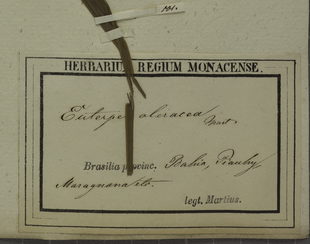 101.
HERBARIUM REGIUM MONACENSE.
Euterpe oleracea Mart
Brasilia provinc. Bahia, Piauhy
Maragnan etc.
legt. Martius.